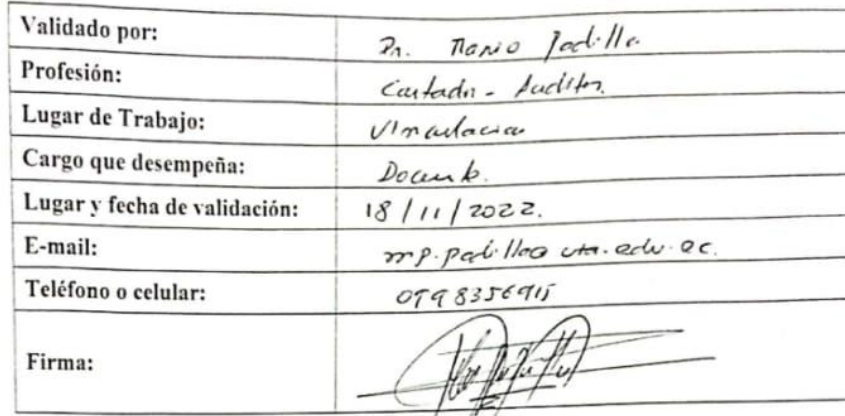 Validado por: Dr. Mario Padilla
Profesión: Contador - Auditor
Lugar de Trabajo: Vinculacion
Cargo que desempeña: Docente.
Lugar y fecha de validación: 18/11/2022.
E-mail: mp.padilla@uta.edu.ec.
Teléfono o celular:
Firma: